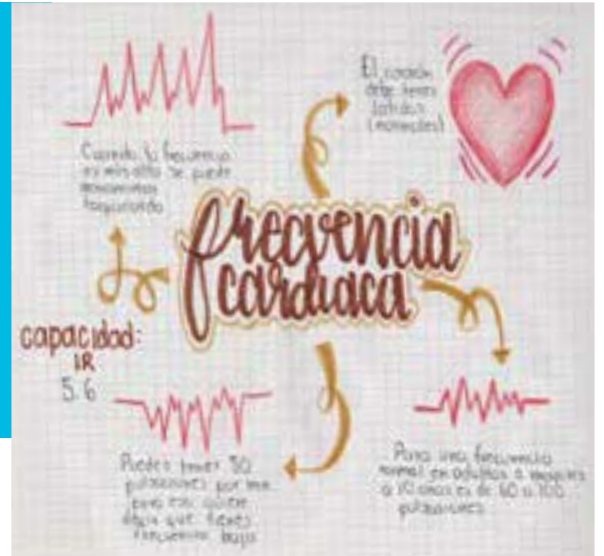 El corazón
debe tener
latidos
(normales)
Cuando la frecuencia
es más alta se puede
taquicardia
frecuencia
cardiaca
capacidad:
IR
5.6
Puedes tener 50
pulsaciones por min
pero eso quiere
decir que tienes
frecuencia baja
Para una frecuencia
normal en adultos a mayores
a 10 años es de 60 a 100
pulsaciones